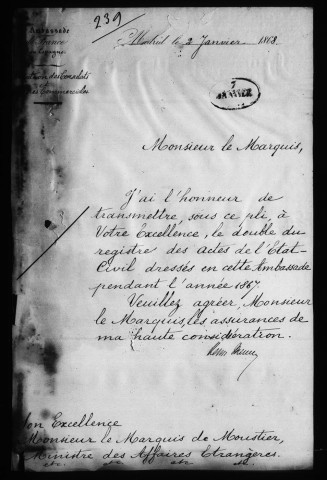 239
Madrid le 2 Janvier 1868.
de France
en Espagne
des Consulats
et
Commerciales
7
JANVIER
Monsieur le Marquis,
J'ai l'honneur de
transmettre, sous ce pli, à
Votre Excellence, le double du
registre des actes de l'Etat-
Civil dressés en cette Ambassade
pendant l'année 1867.
Veuillez agréer, Monsieur
le Marquis, les assurances de
ma haute considération.
Son Excellence
Monsieur le Marquis de Moustier,
Ministre des Affaires Etrangères.
etc. etc. etc. etc.